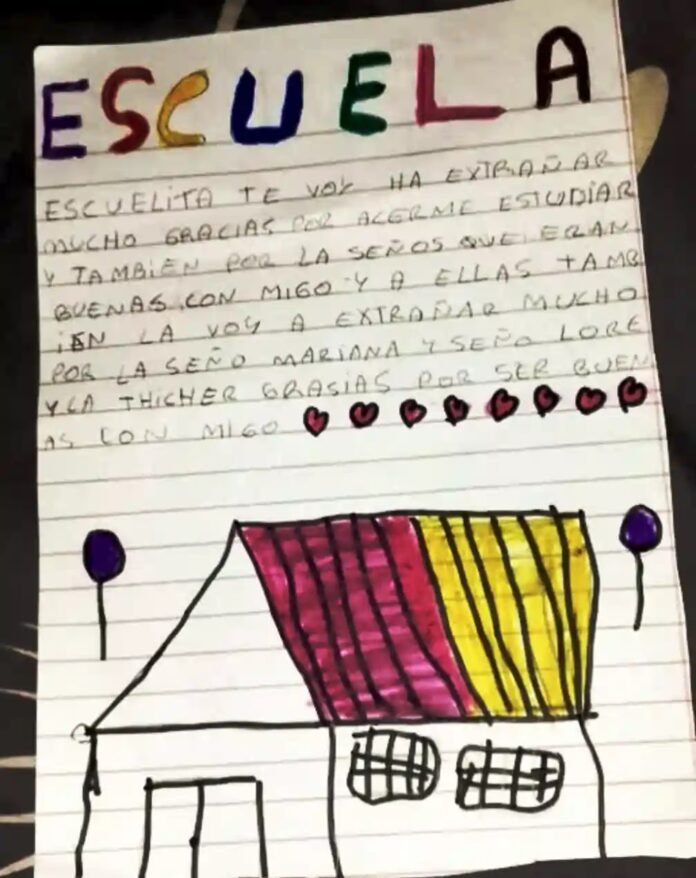 ESCUELA
ESCUELITA TE VOY HA EXTRAÑAR
MUCHO GRACIAS POR ACERME ESTUDIAR
Y TAMBIEN POR LA SEÑOS QUE ERAN
BUENAS CON MIGO Y A ELLAS TAMB
IEN LA VOY A EXTRAÑAR MUCHO
POR LA SEÑO MARIANA Y SEÑO LORE
Y LA THICHER GRASIAS POR SER BUEN
AS CON MIGO